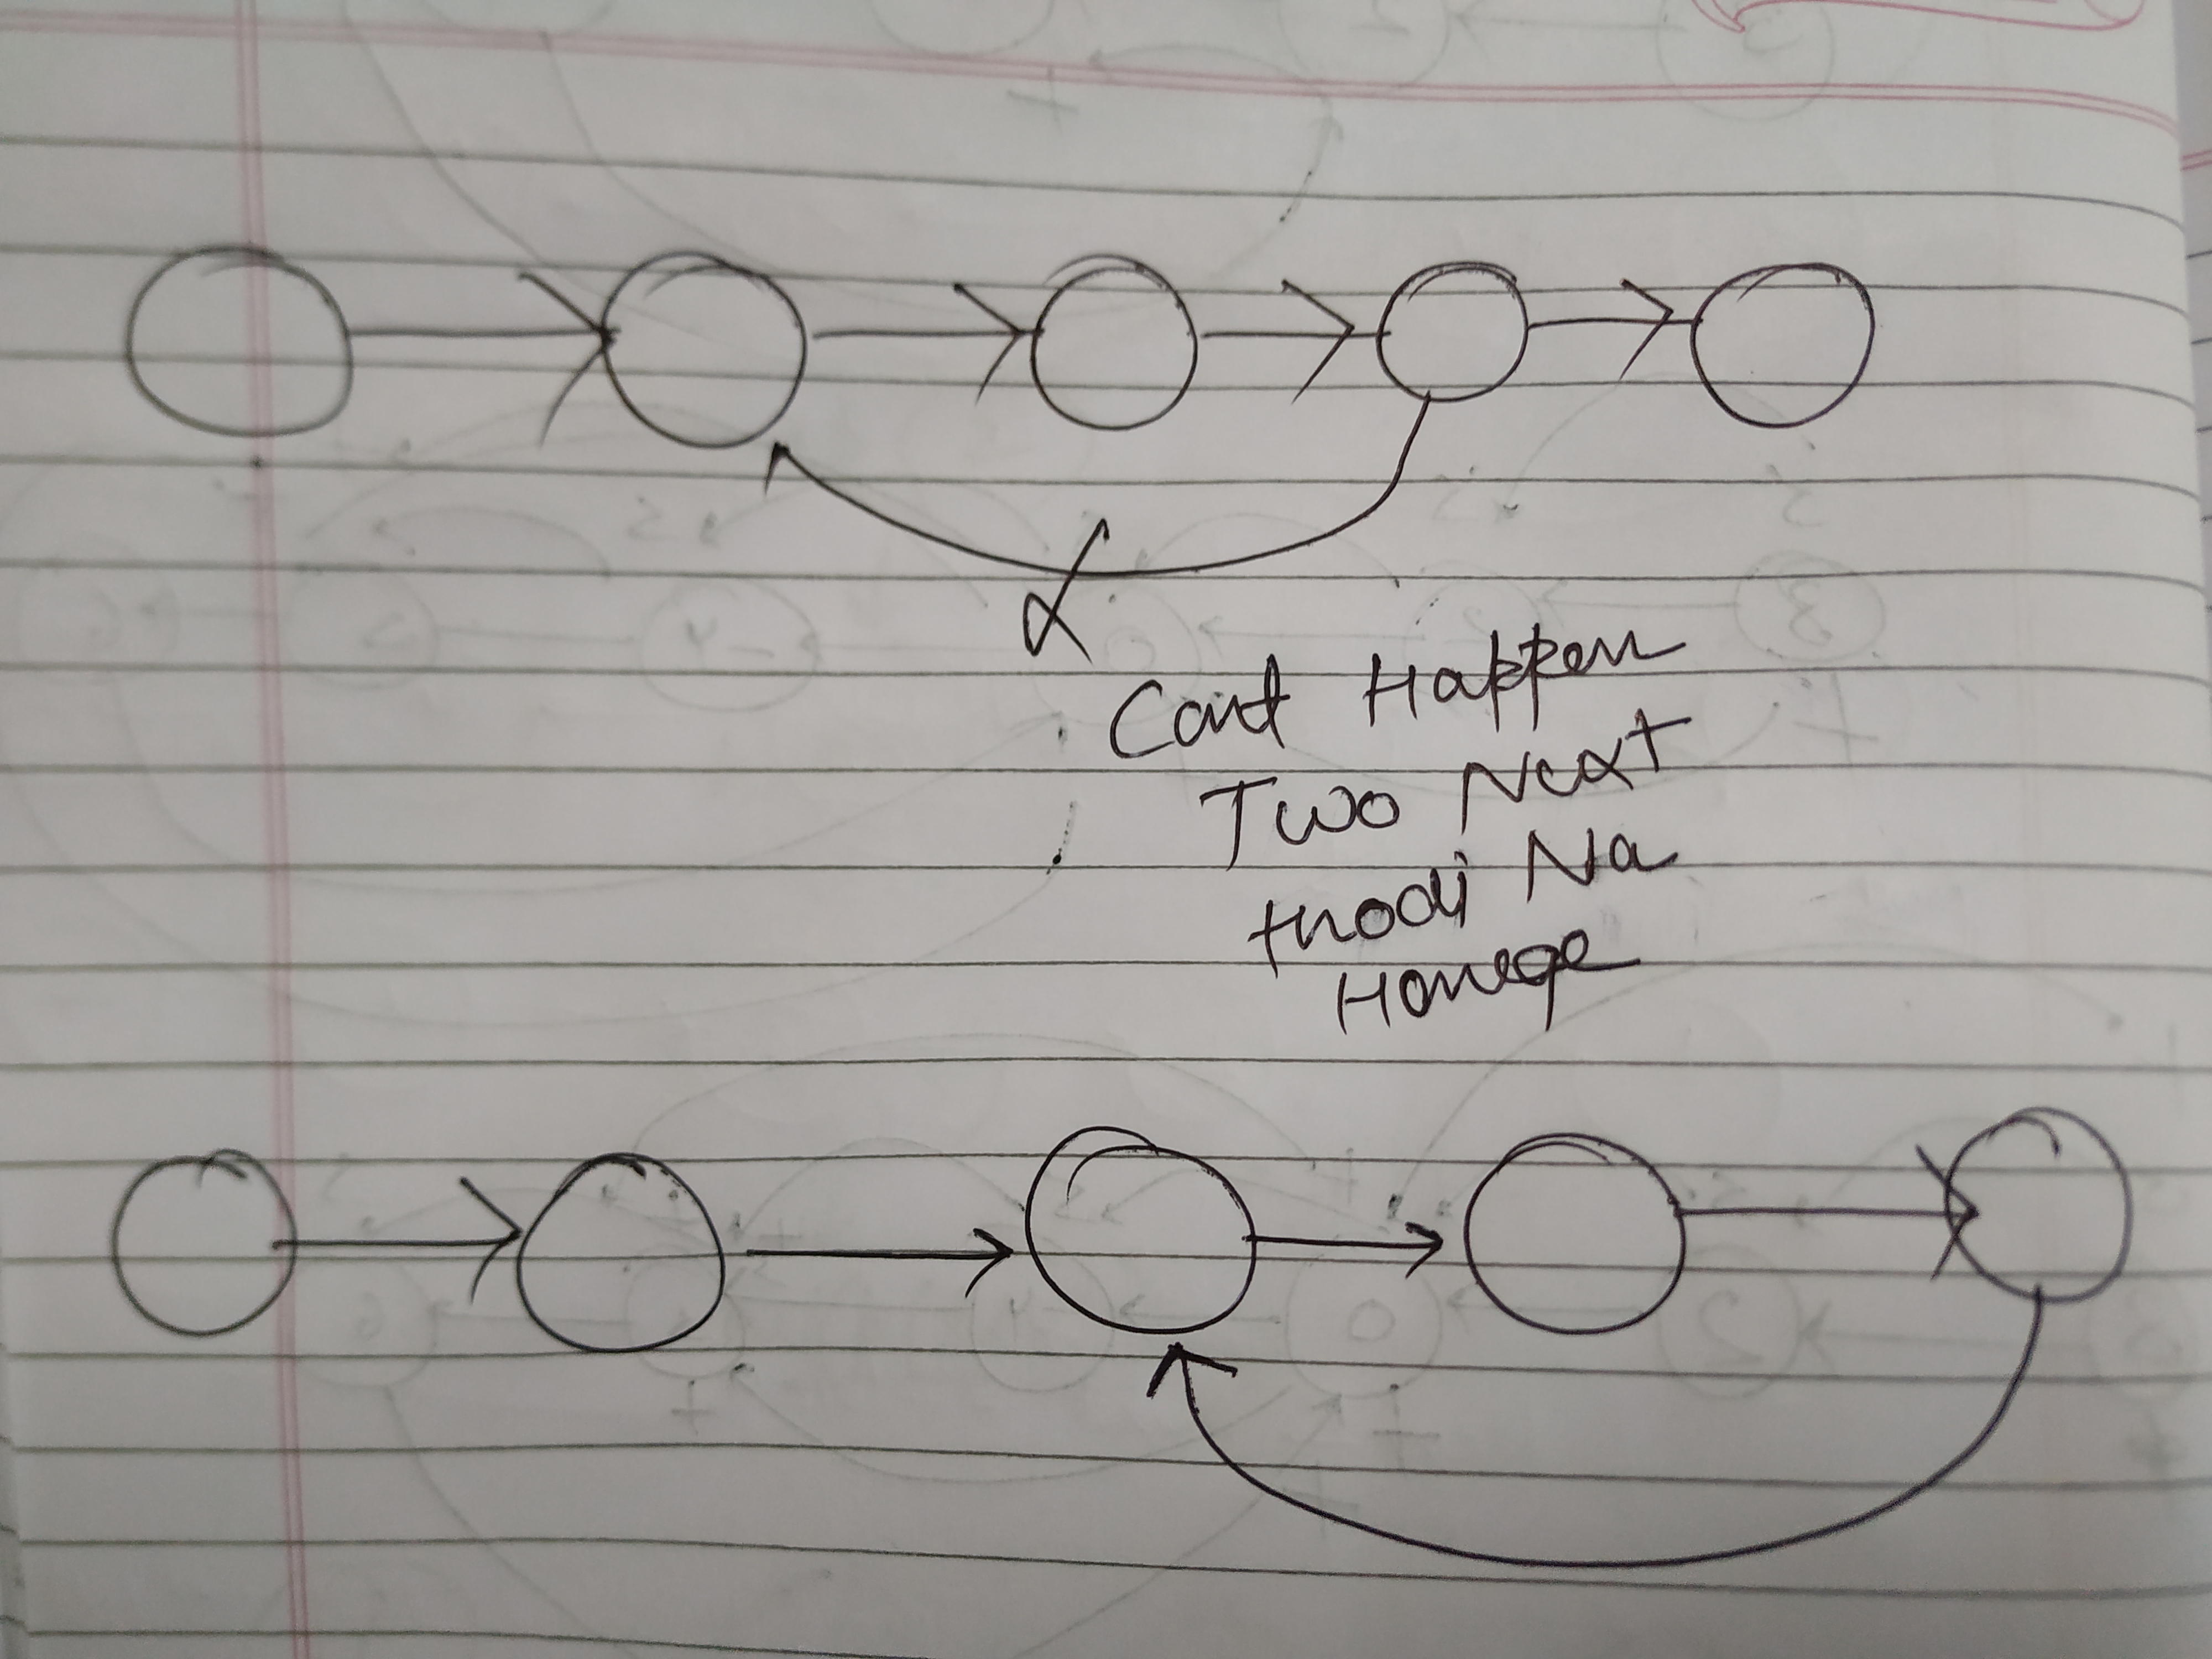 Cant Happen
Two Next
thodi Na
Honege